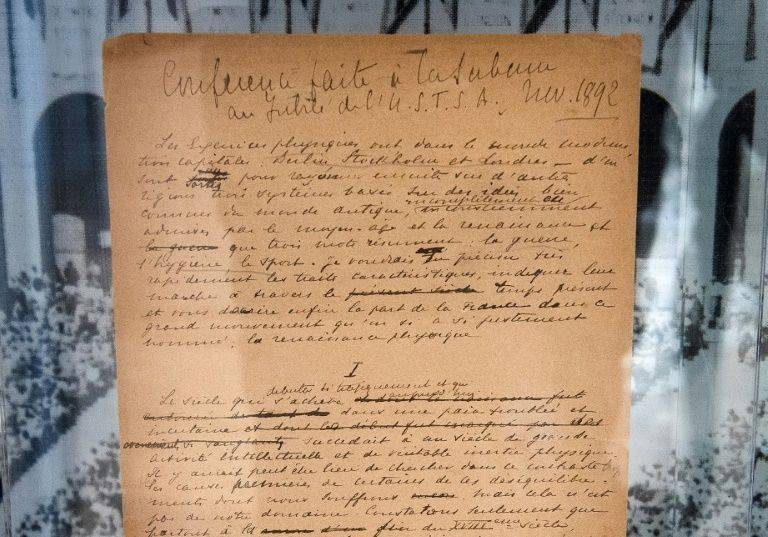 Conférence faite à la Sorbonne
au Jubilé de l'U.S.F.S.A. Nov. 1892
Les Exercices physiques ont dans le monde moderne
trois capitales: Berlin, Stockholm et Londres — d'où
sont pour rayonner ensuite sur d'autres
régions trois systèmes basés sur des idées bien
connues du monde antique, incomplètement et
inconsciemment
admises par le moyen-age et la renaissance et
la guerre que trois mots résument: la guerre,
l'hygiène, le sport. Je voudrais en préciser très
rapidement les traits caractéristiques, indiquer leur
marche à travers le présent siècle temps présent
et vous dire enfin la part de la France dans ce
grand mouvement qu'on a si justement
nommé: la renaissance physique
I
débuta si tragiquement et qui
Le siècle qui s'achève fut
dans une paix troublée et
incertaine et dont le début fut marqué par des
si sanglants, succédait à un siècle de grande
activité intellectuelle et de véritable inertie physique.
Il y aurait peut être lieu de chercher dans ce contraste
les causes premières de certains de ces déséquilibre-
ments dont nous souffrons mais cela n'est
pas de notre domaine. Constatons seulement que
partout à la fin du XVIIIème siècle,